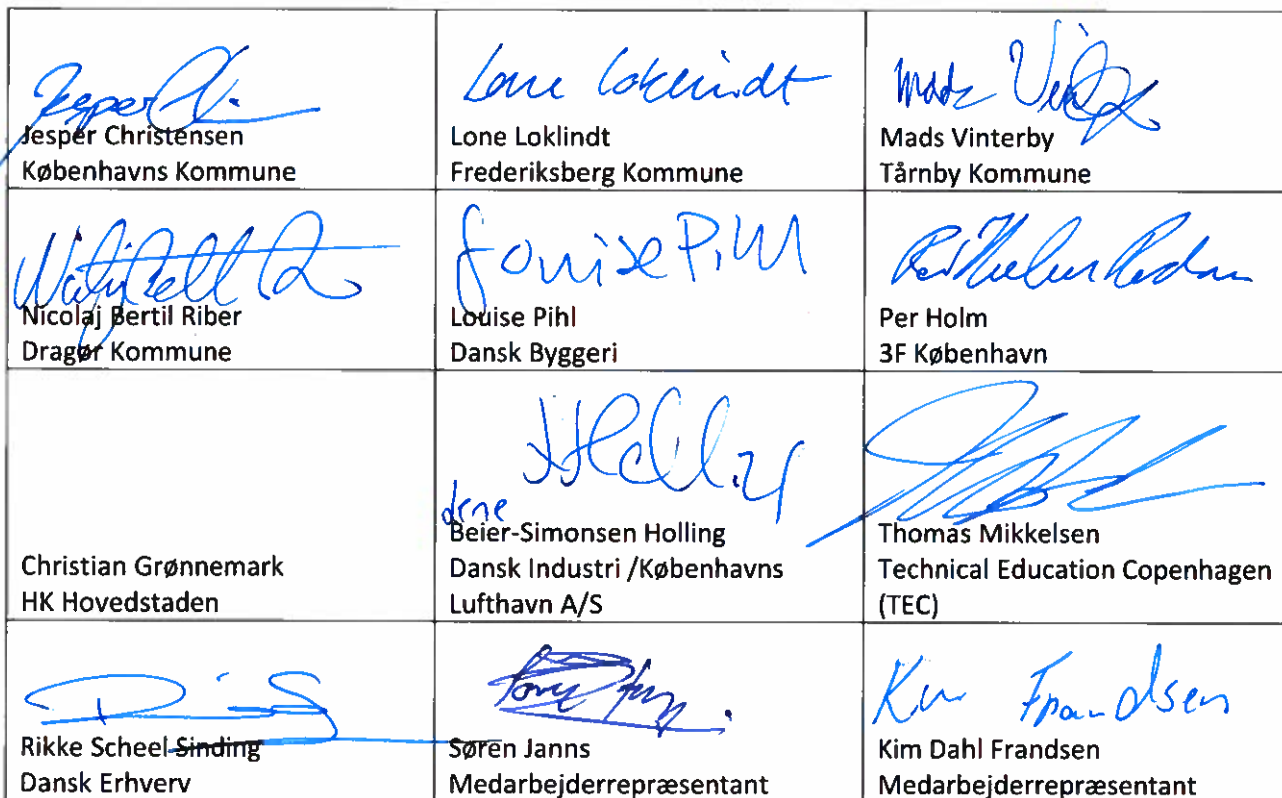 Jesper
Jesper Christensen
Københavns Kommune
Lone Loklindt
Lone Loklindt
Frederiksberg Kommune
Mads
Mads Vinterby
Tårnby Kommune
Nicolaj Bertil Riber
Dragør Kommune
Louise Pihl
Louise Pihl
Dansk Byggeri
Per Holm
3F København
Christian Grønnemark
HK Hovedstaden
Beier-Simonsen Holling
Dansk Industri /Københavns
Lufthavn A/S
Thomas Mikkelsen
Technical Education Copenhagen
(TEC)
Rikke Scheel Sinding
Dansk Erhverv
Søren Janns
Medarbejderrepræsentant
Kim Frandsen
Kim Dahl Frandsen
Medarbejderrepræsentant